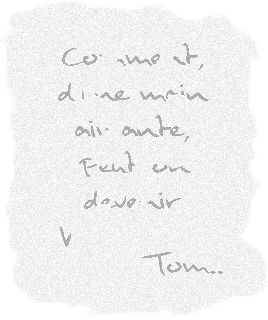 Comment,
d'une main
aimante,
Peut on
devenir
V
Tom..